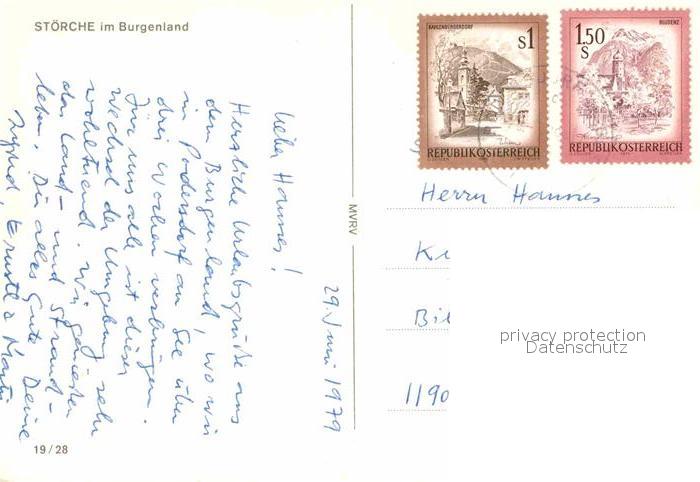 STÖRCHE im Burgenland
29. Juni 1979
Lieber Hannes!
Herzliche Urlaubsgrüße aus
dem Burgenland, wo wir
in Podersdorf am See über
drei Wochen verbringen.
Für uns alle ist dieser
Wechsel der Umgebung sehr
wohltuend. Wir genießen
das Land- und Strand-
leben. Dir alles Gute Deine
Ingrid, & Martin
19/28
MVRV
KAHLENBERGERDORF
S1
REPUBLIK ÖSTERREICH
BLUDENZ
1.50
S
REPUBLIK ÖSTERREICH
Herrn Hannes
Ki
Bil
1190
privacy protection
Datenschutz